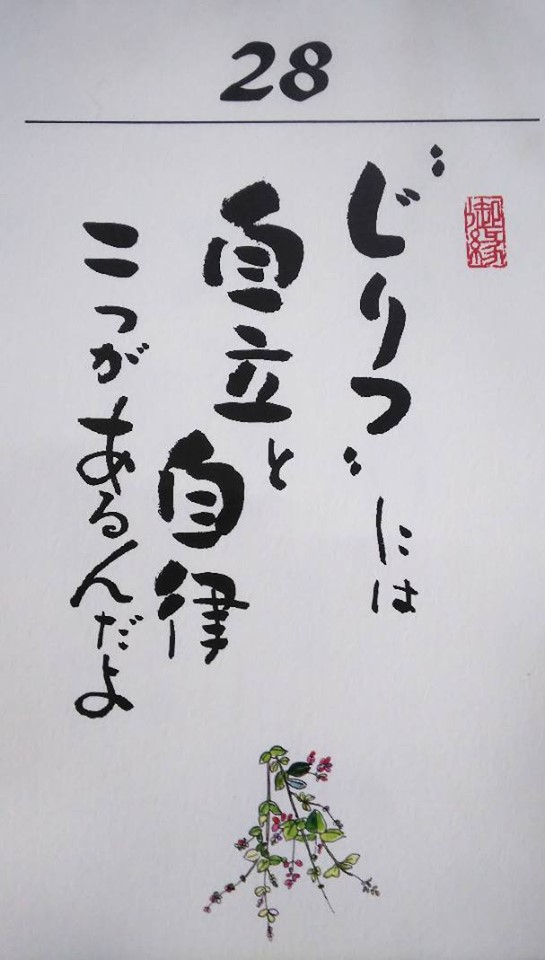 28
御縁
"じりつ"には
自立と
自律
二つがあるんだよ